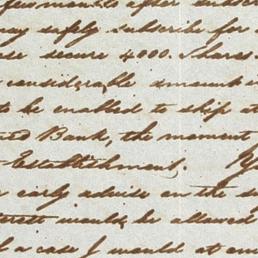 few months after
may safely subscribe for
secure 4000. Shares
considerable amount
to be enabled to ship at
Bank, the moment
Establishment.
early advice on the
would be allowed
of a case I would at